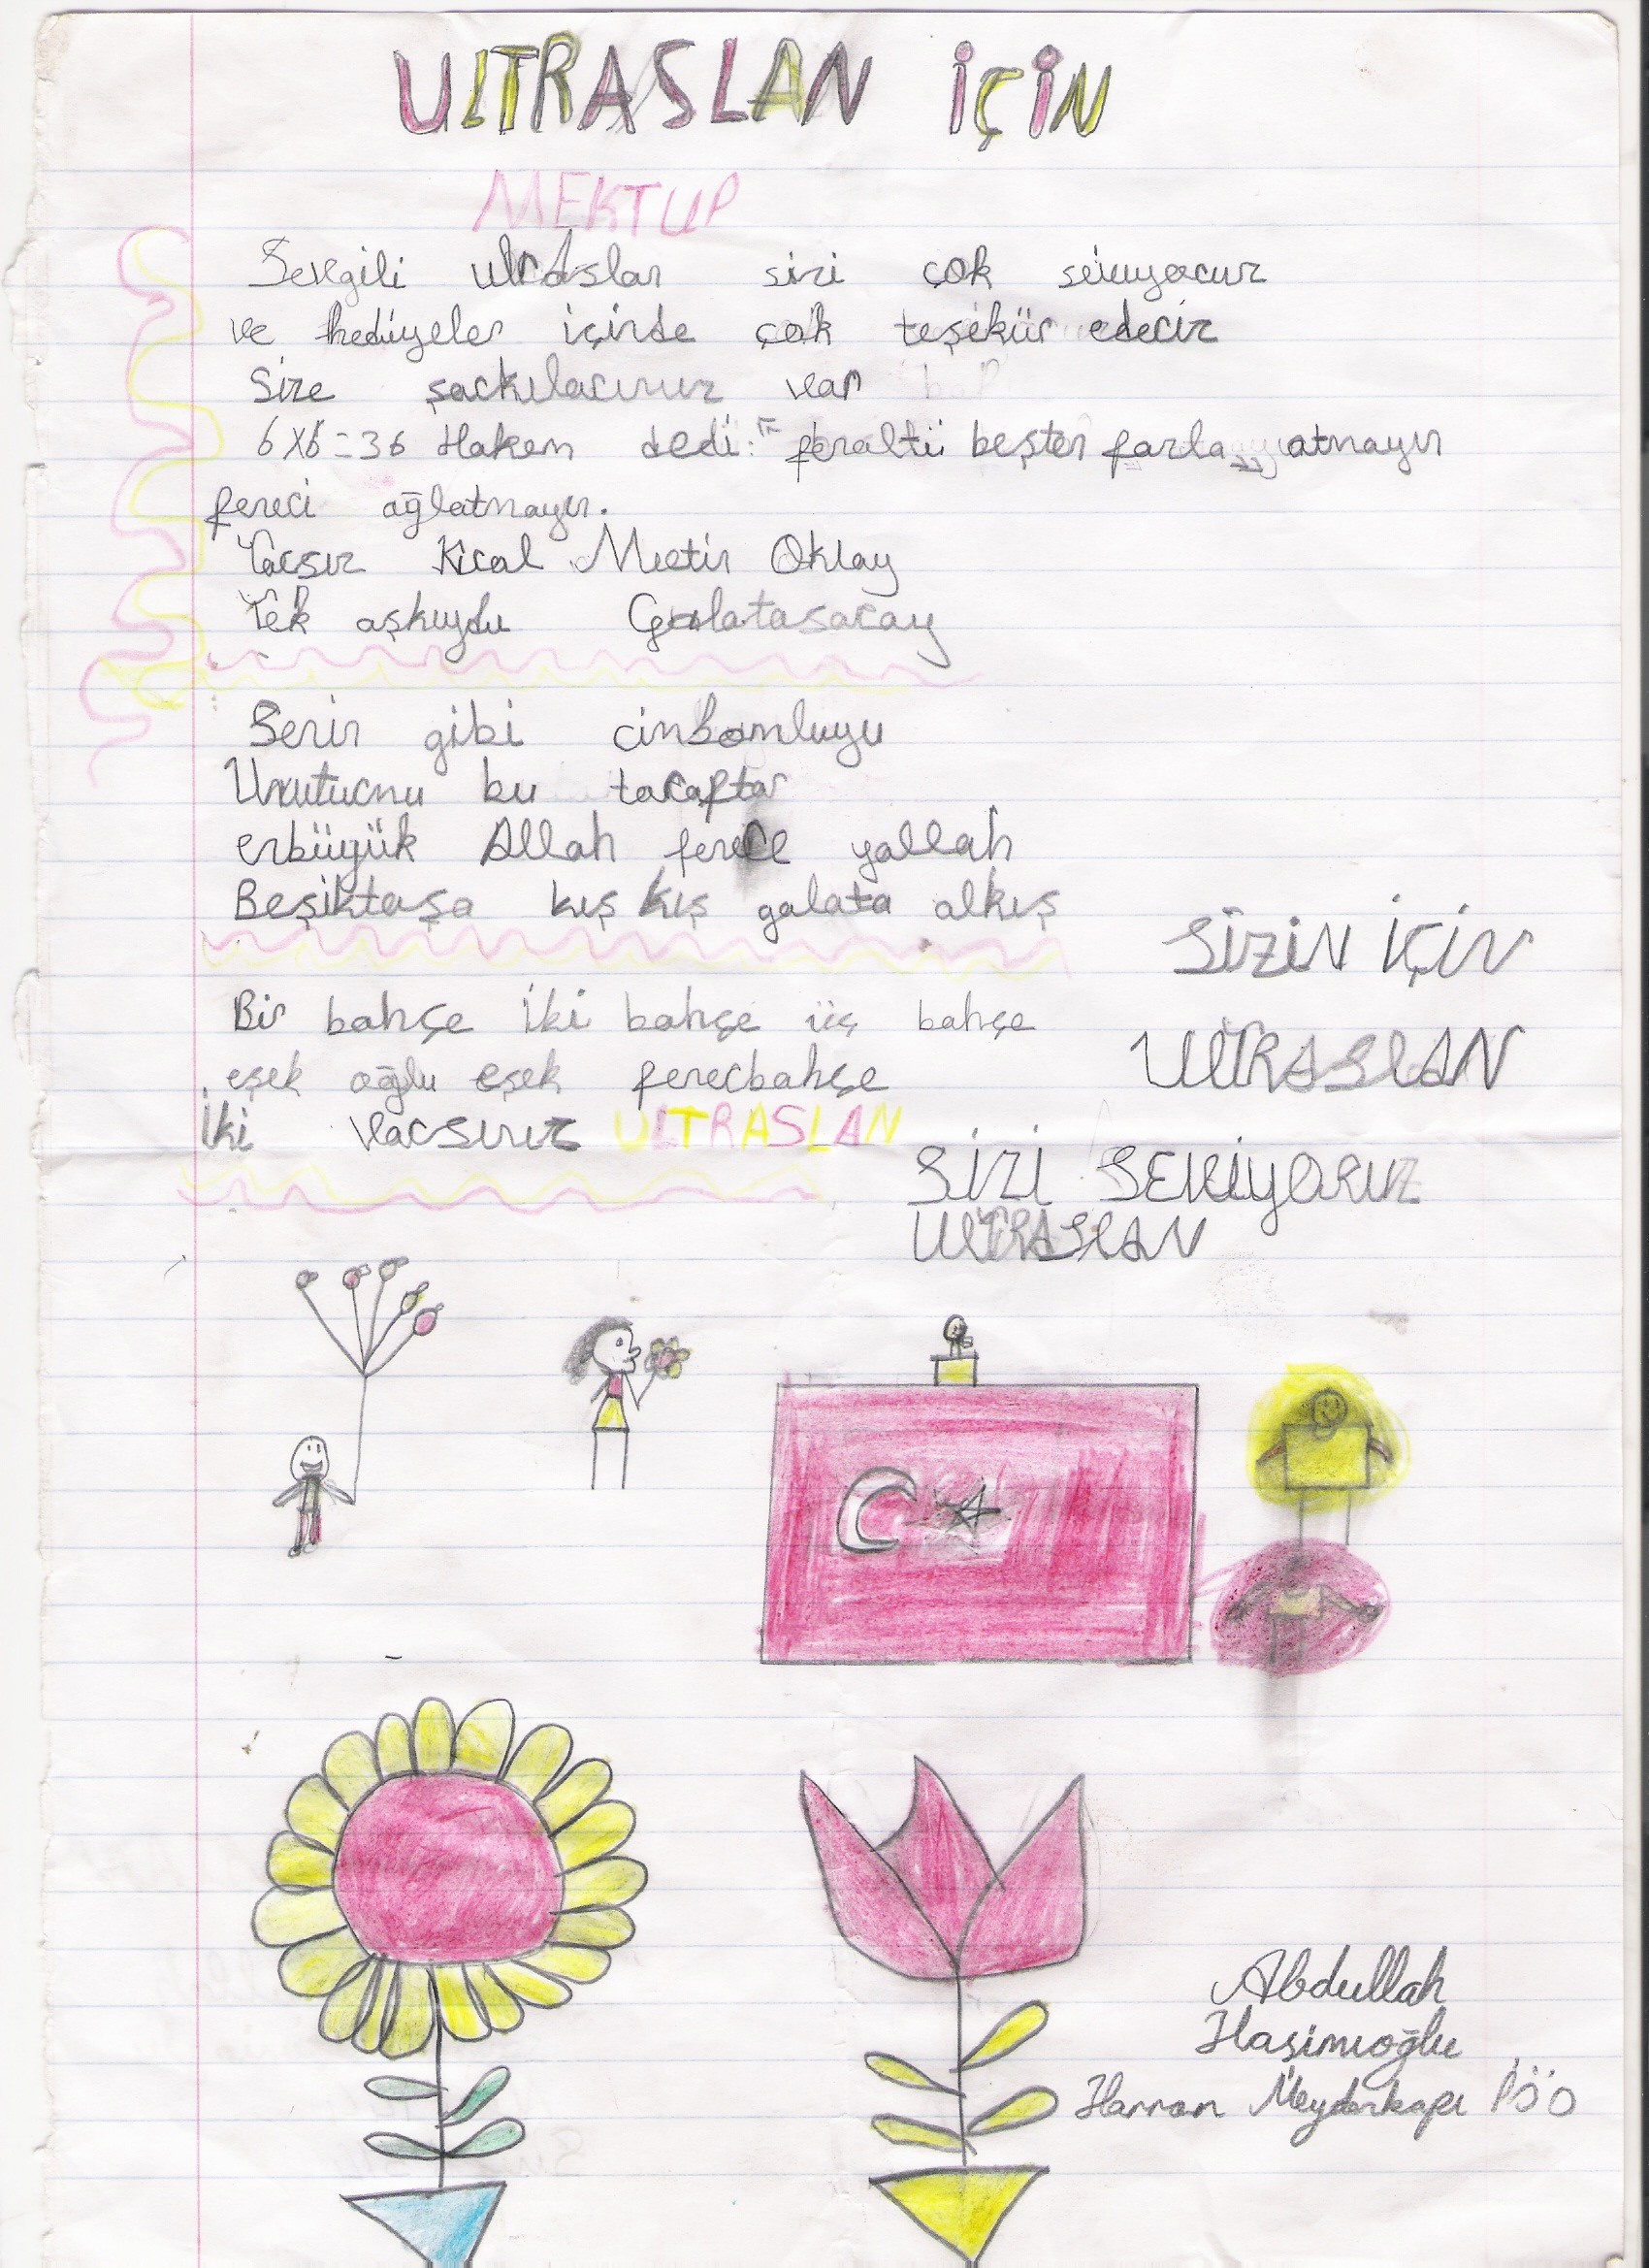 ULTRASLAN İÇİN
MEKTUP
Sevgili ultraslan sizi çok seviyoruz
ve hediyeler içinde çok teşekür ederiz
Size şarkılarımız var
6X6=36 Hakem dedi: feraltı beşten fazla atmayın
feneri ağlatmayın.
Tacsız Kıral Metin Oktay
Tek aşkıydu Galatasaray
Senin gibi cinbomluyu
Unuturmu bu taraftar
enbüyük Allah fenere yallah
Beşiktaşa kış kış galata alkış
Bir bahçe iki bahçe üç bahçe
eşek oğlu eşek fenerbahçe
İki varsınız ULTRASLAN
SİZİN İÇİN
ULTRASLAN
SİZİ SEVİYORUZ
ULTRASLAN
Abdullah
Haşimoğlu
Harran Meydankapı İÖO